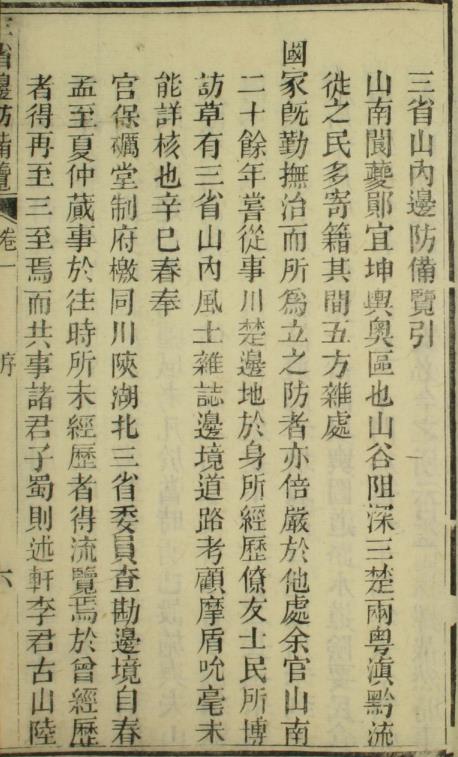 三省山內邊防備覽引
山南閬夔鄖宜坤輿奧區也山谷阻深三楚兩粵滇黔流
徙之民多寄籍其間五方雜處
國家旣勤撫治而所爲立之防者亦倍嚴於他處余官山南
二十餘年嘗從事川楚邊地於身所經歷僚友士民所博
訪草有三省山內風土雜誌邊境道路考顧摩盾吮毫未
能詳核也辛巳春奉
宮保礪堂制府檄同川陝湖北三省委員查勘邊境自春
孟至夏仲蕆事於往時所未經歷者得流覽焉於曾經歷
者得再至三至焉而共事諸君子蜀則述軒李君古山陸
三省邊防備覽
卷一
序
六